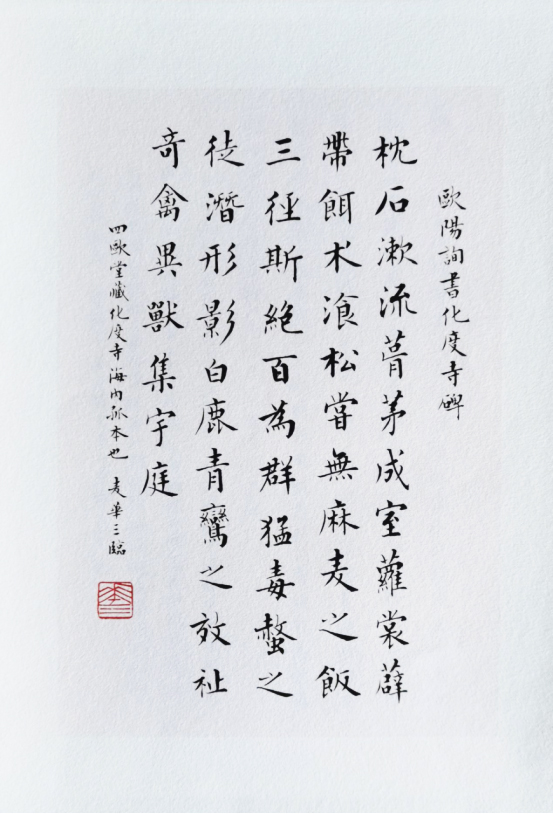 歐陽詢書化度寺碑
枕石漱流葺茅成室蘿裳薜
帶餌朮飡松嘗無麻麦之飯
三徑斯絕百為群猛毒螫之
徒潛形影白鹿青鸞之效祉
奇禽異獸集宇庭
四歐堂藏化度寺海內孤本也 麦華三臨